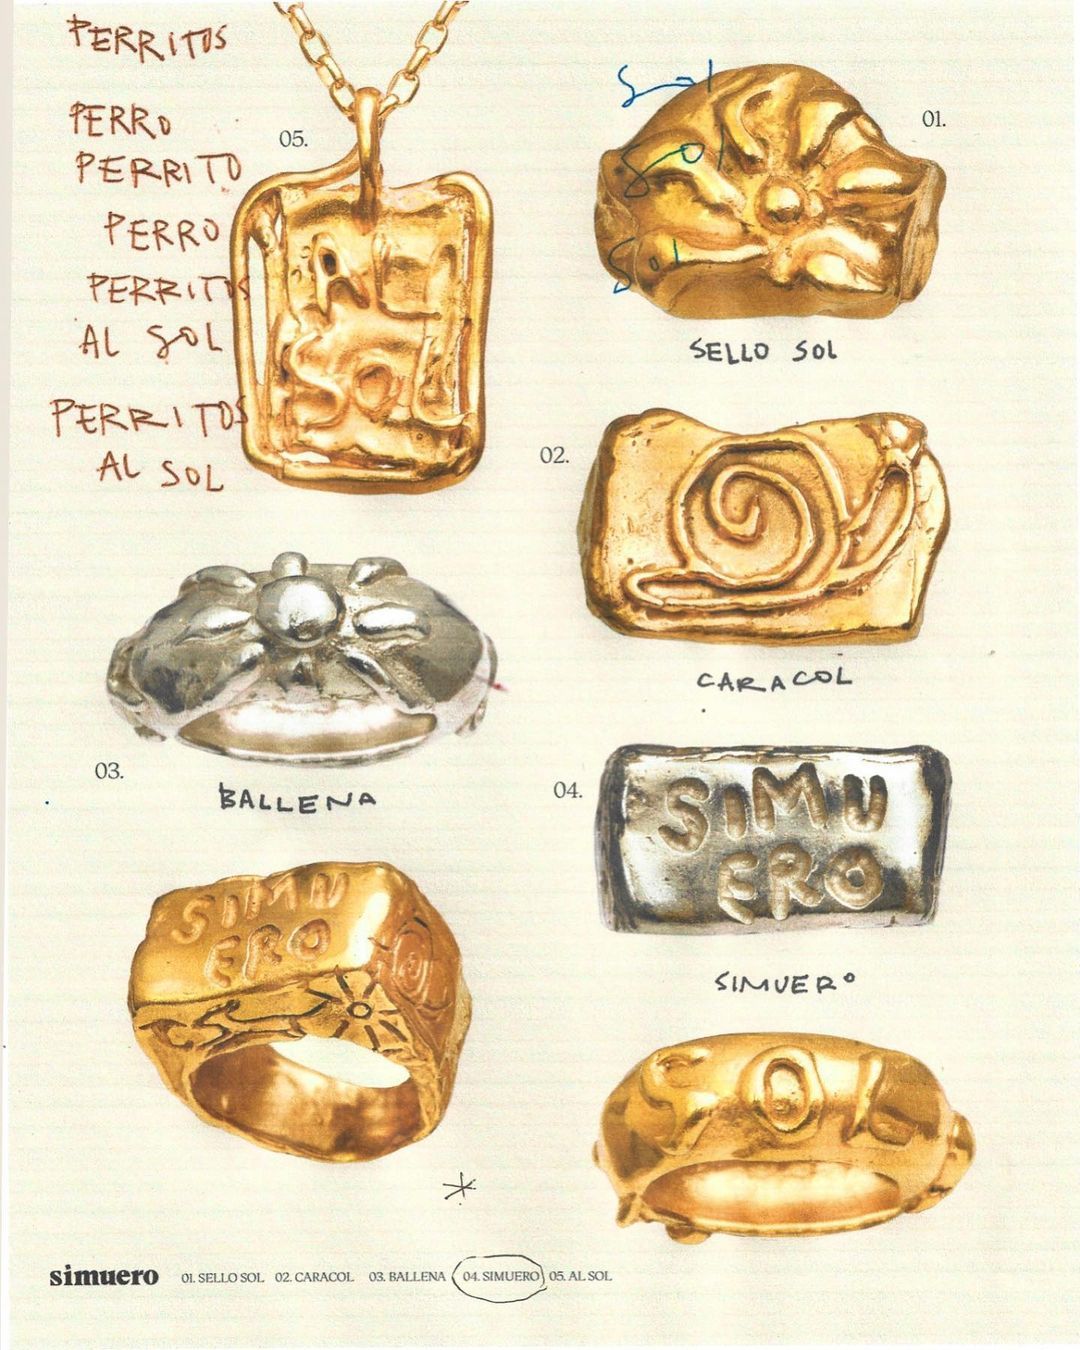 PERRITOS
PERRO
PERRITO
PERRO
PERRITOS
AL SOL
PERRITOS
AL SOL
05.
AL
SOL
Sol
Sol
Sol
01.
SELLO SOL
02.
CARACOL
03.
BALLENA
04.
SIMU
ERO
SIMUERO
SIMU
ERO
SOL
simuero 01. SELLO SOL 02. CARACOL 03. BALLENA 04. SIMUERO 05. AL SOL